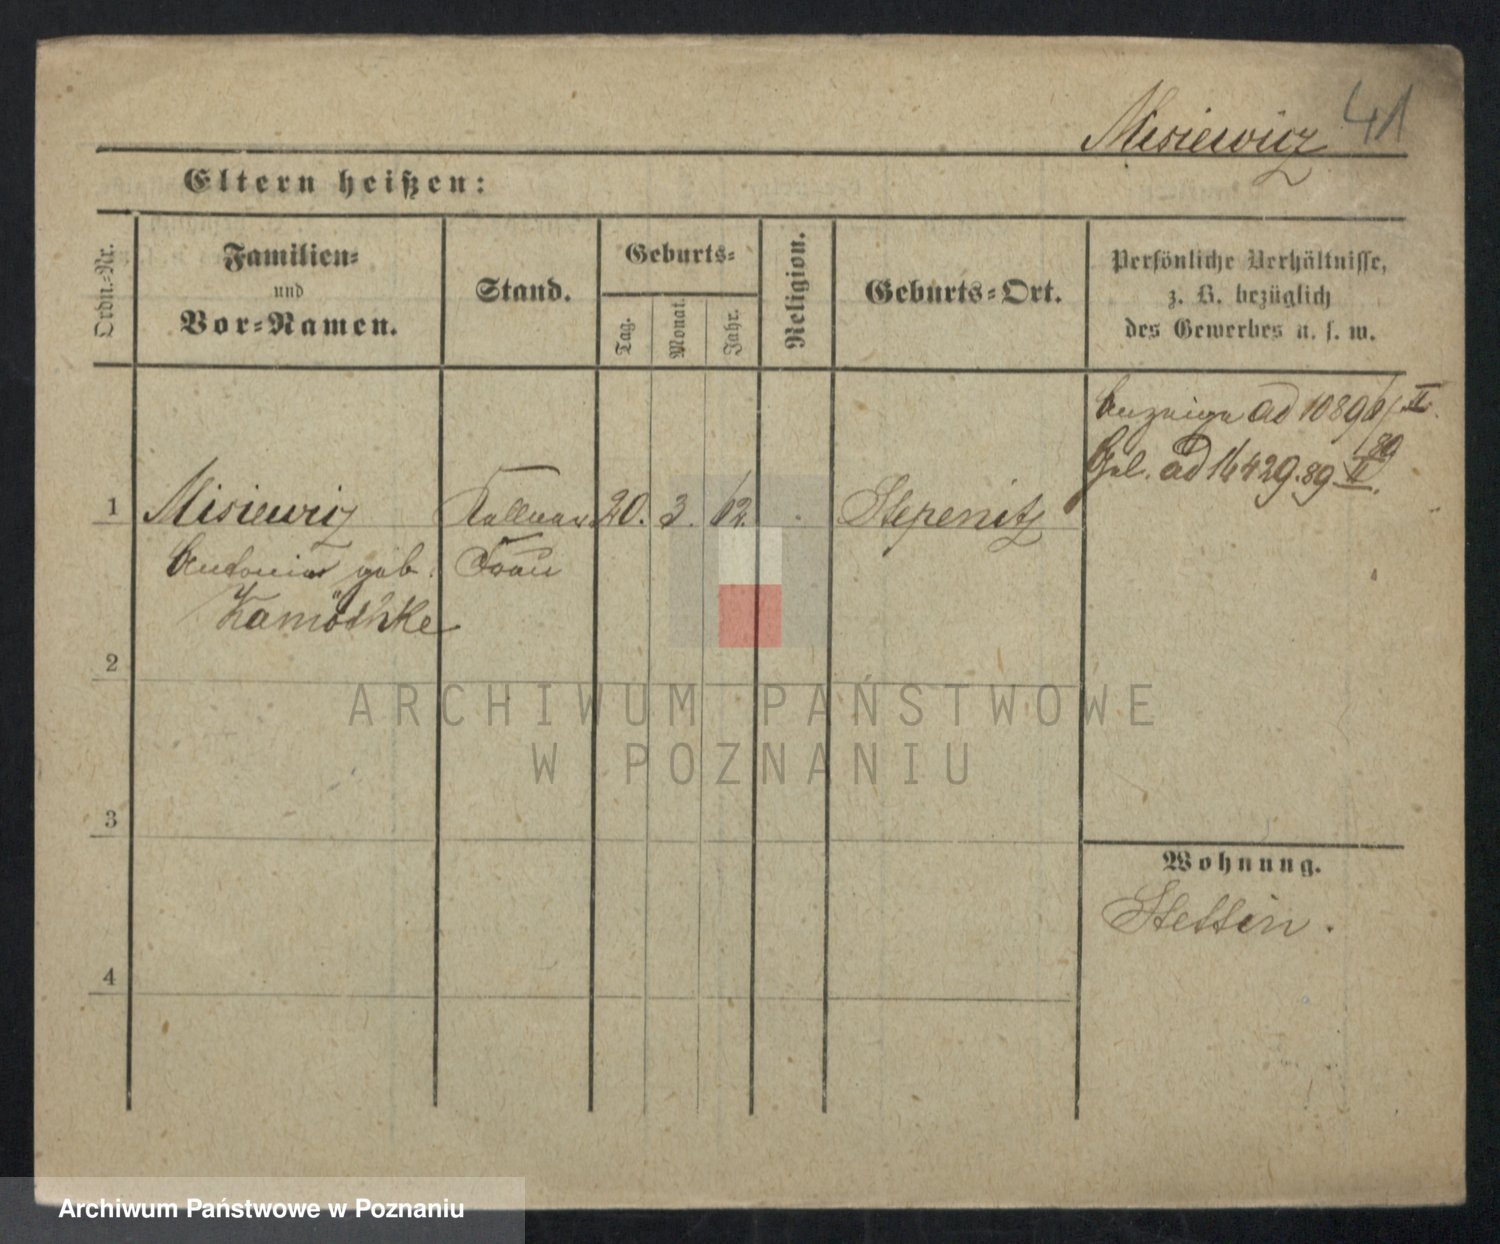 Misiewicz 41
Eltern heißen:
Ordn.-Nr.
Familien-
und
Vor-Namen.
Stand.
Geburts-
Tag.
Monat.
Jahr.
Religion.
Geburts-Ort.
Persönliche Verhältnisse,
z. B. bezüglich
des Gewerbes u. s. w.
Anzeige ad 1089
89
Gel. ad 14429.89 II.
1 Misiewicz Kellner 20. 3. 12. Stepenitz
Antonia geb. Frau
Kamöthke
2
ARCHIWUM PAŃSTWOWE
W POZNANIU
3
Wohnung.
Stettin.
4
Archiwum Państwowe w Poznaniu